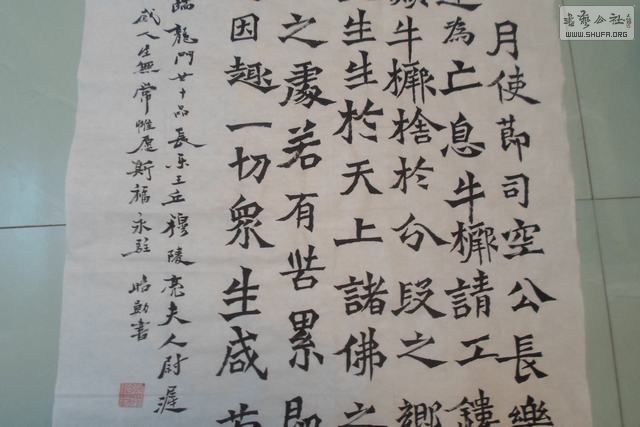 月使莭司空公長樂
為亡息牛橛請工鏤
牛橛捨於分段之鄉
生生於天上諸佛之
之處若有苦累即
因趣一切眾生咸
臨龍門廿十品長樂王丘穆陵亮夫人尉遲
感人生無常惟愿斯福永駐 昭勳書
書藝公社
WWW.SHUFA.ORG